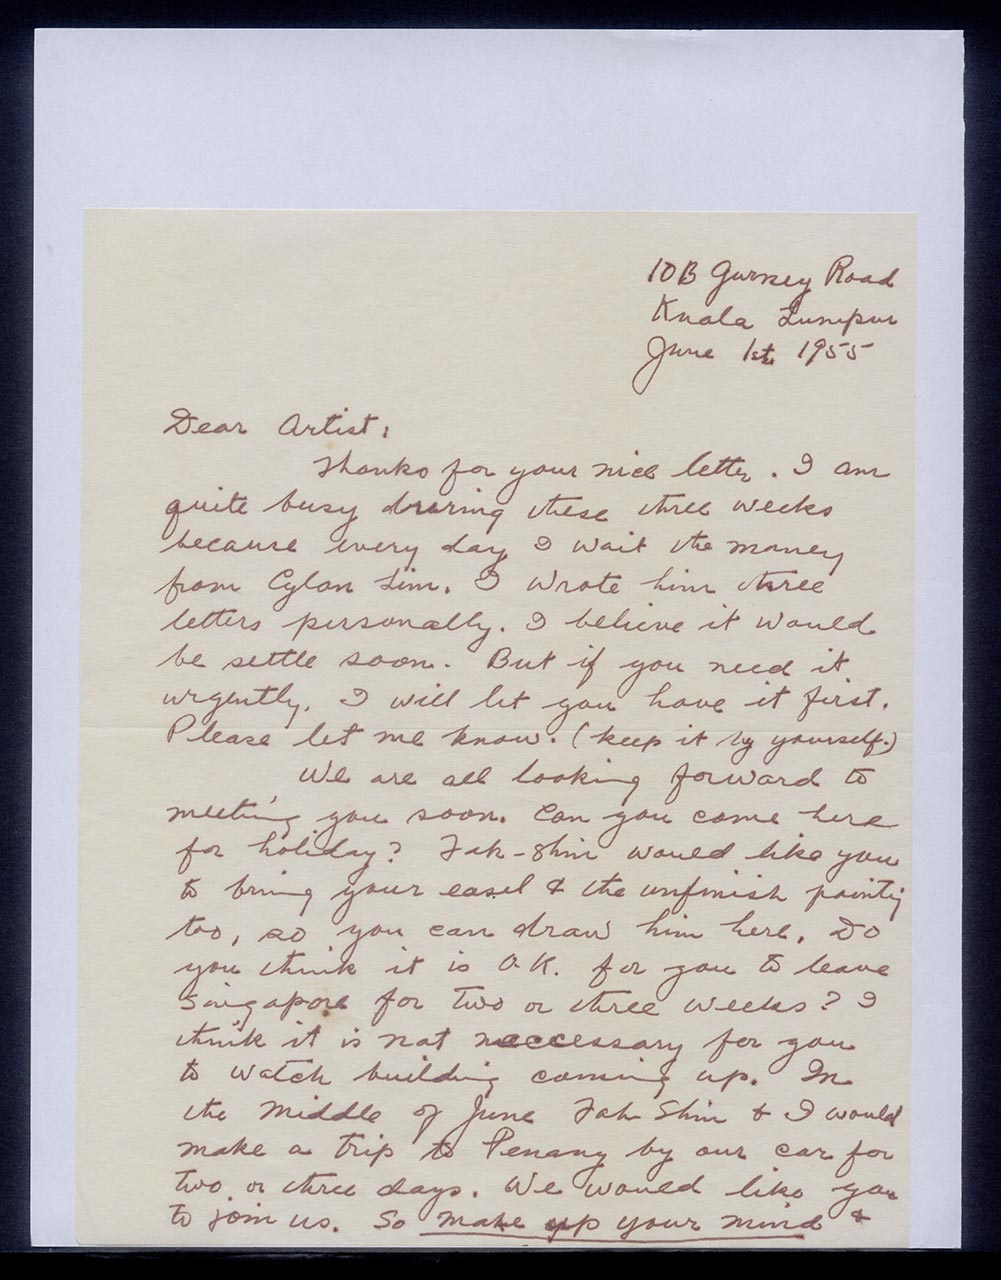 10B Gurney Road
Kuala Lumpur
June 1st 1955
Dear Artist,
Thanks for your nice letter. I am
quite busy draring these three weeks
because every day I wait the money
from Cylan Lim. I wrote him three
letters personally. I believe it would
be settle soon. But if you need it
urgently, I will let you have it first.
Please let me know. (keep it by yourself.)
We are all looking forward to
meeting you soon. Can you come here
for holiday? Fah-Shin would like you
to bring your easel & the unfinish painting
too, so you can draw him here. Do
you think it is O.K. for you to leave
Singapore for two or three weeks? I
think it is not neccessary for you
to watch building coming up. In
the middle of June Fah Shin & I would
make a trip to Penang by our car for
two or three days. We would like you
to join us. So make up your mind &